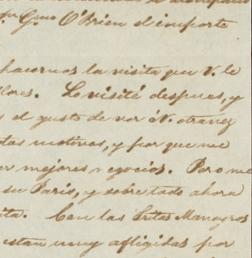 Gmo O'Brien el importe
hacernos la visita que V. le
lores. Lo visité despues, y
el gusto de ver á V. otra vez
tos motivos, y por que me
mejores negocios. Pero me
su Paris, y sobre todo ahora
ita. Con las Srtas Monagros
estan muy afligidas por